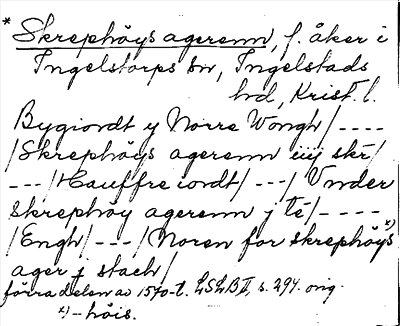 * Skrephöys agerenn, f. åker i
Ingelstorps sn, Ingelstads
hd, Krist. l.
Bygiordt y Norre Wongh/----
/Skrephöys agerenn iiij skr/
---/Hauffre iordt/---/ Vnder
skrephöy agerenn j te/----
/Engh/---/Noren for skrephöys x)
ager j stach/
förra delen av 1570-t. LSLB II, s. 294. orig.
x) -höis.